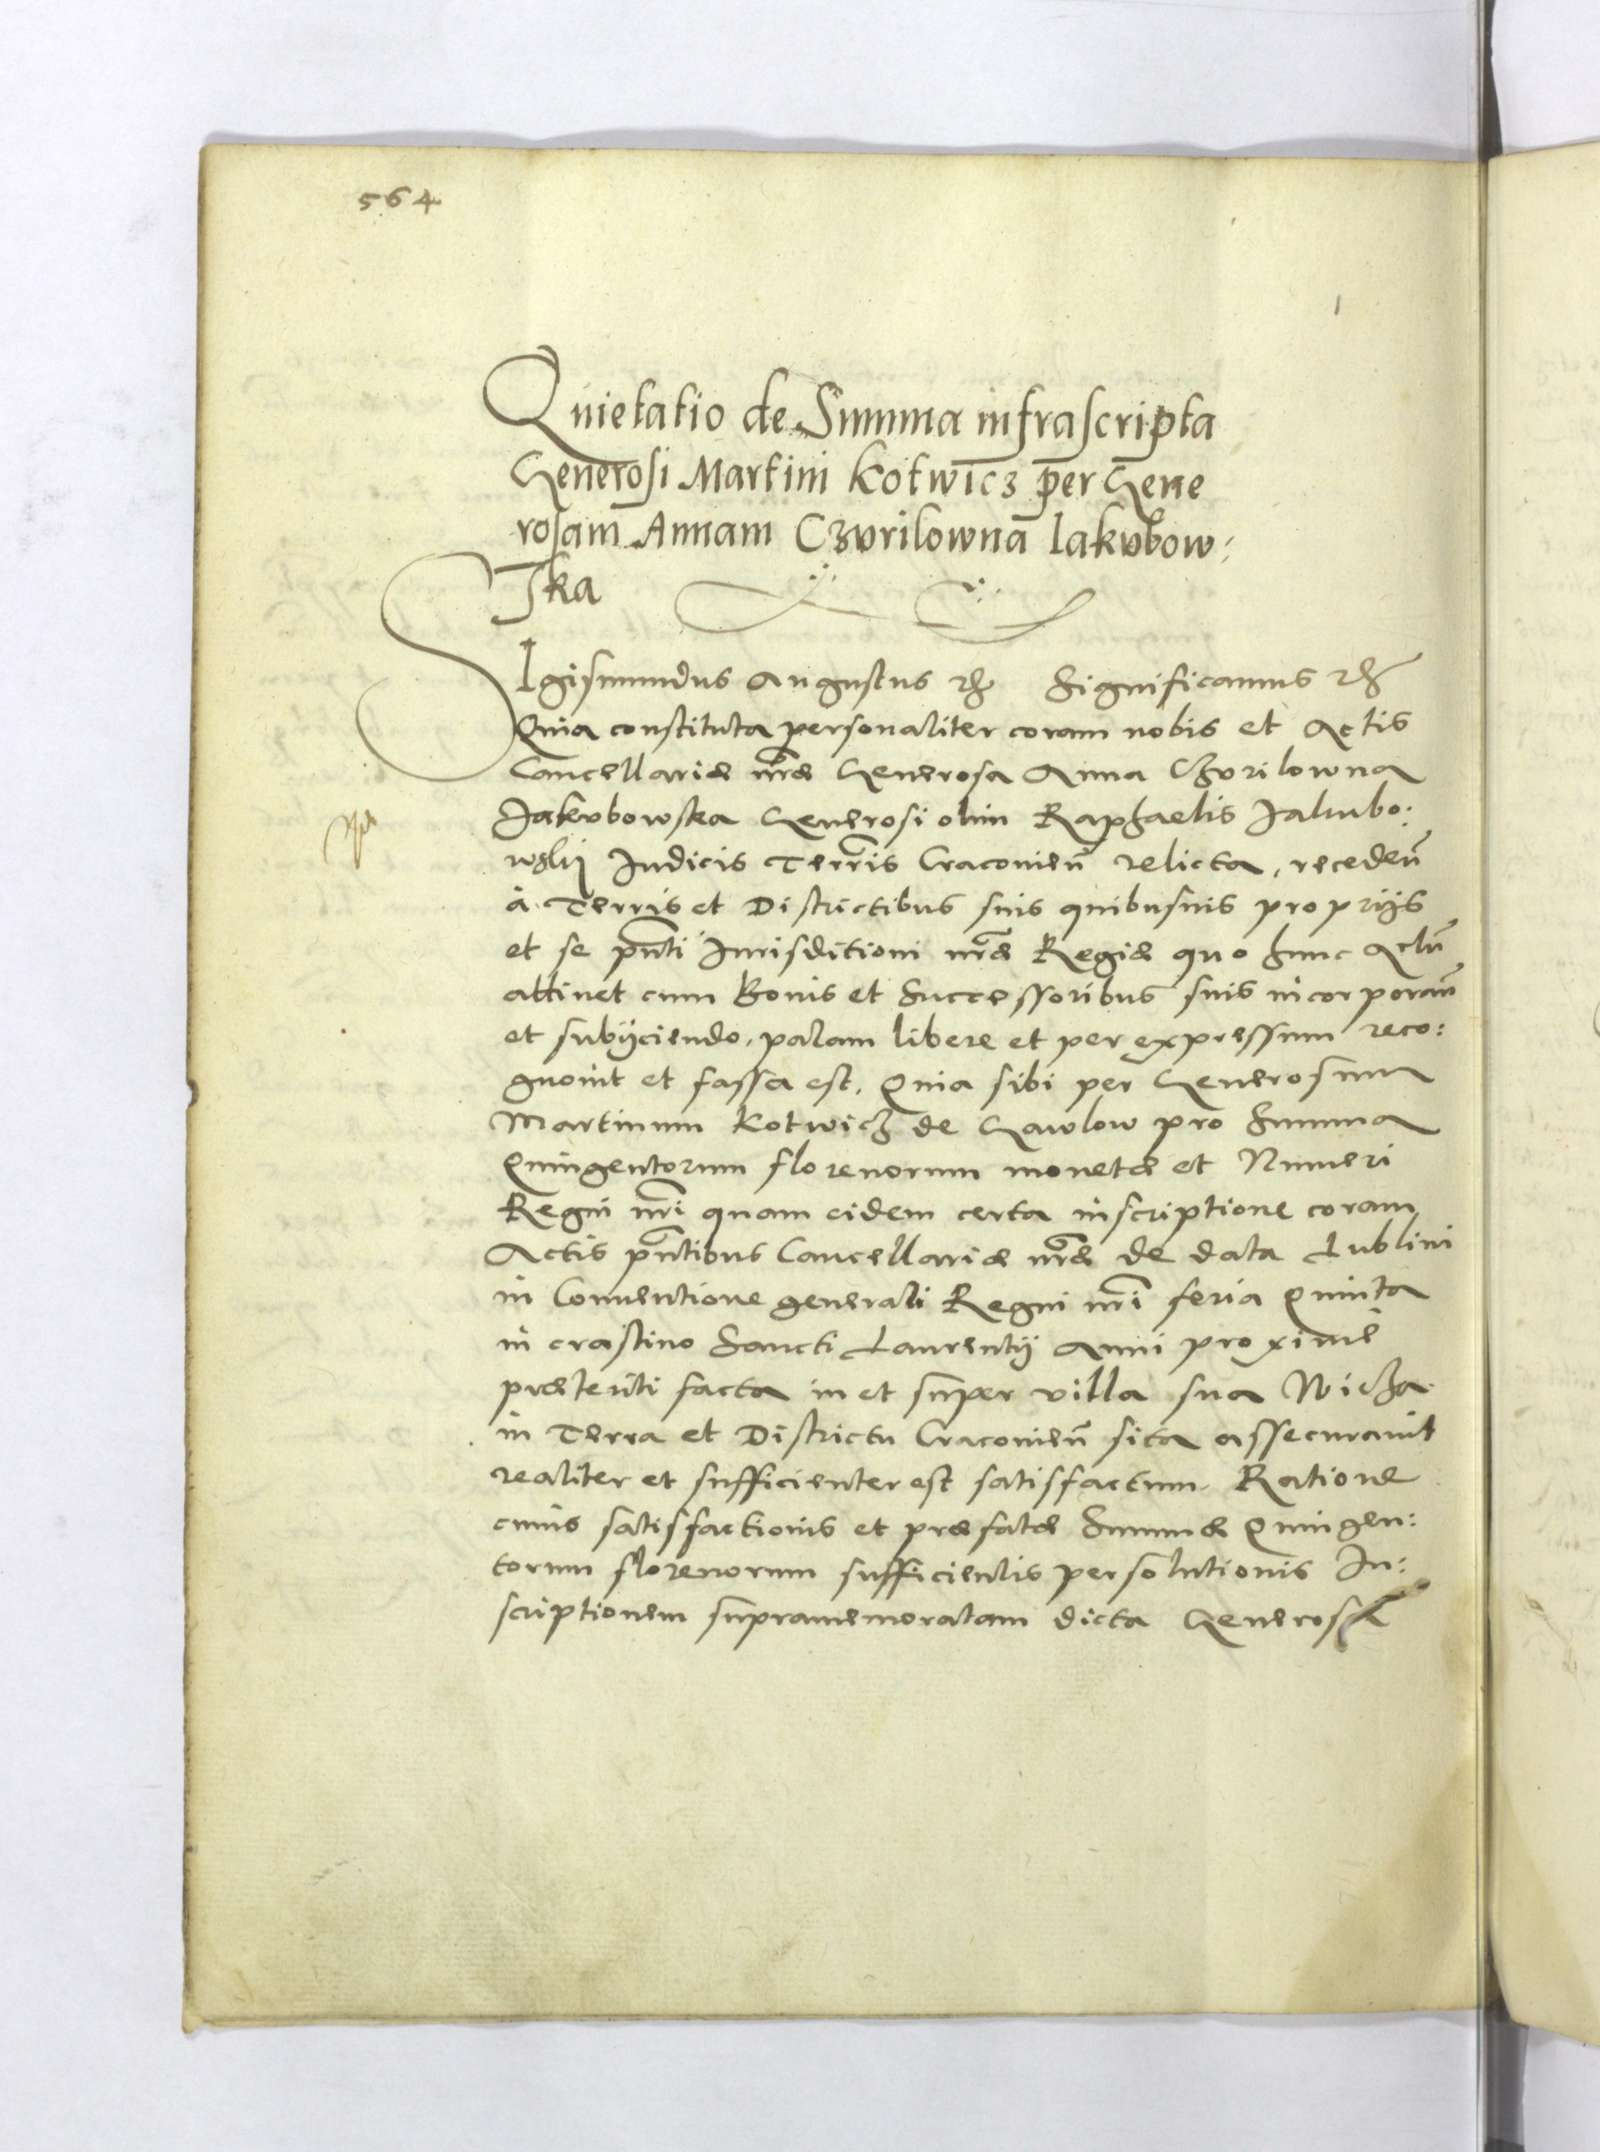 564
Quietatio de Summa infrascripta
Generosi Martini Kotwicz per Gene
rosam Annam Czvrilowna Iakvbow:
ska
SIgismundus Augustus etc Significamus etc
Quia constituta personaliter coram nobis et Actis
Cancellariæ nr̃æ Generosa Anna Czvrilowna
Jakvbowska Generosi olim Raphaelis Jakubo:
wskij Iudicis Terrr̃is Cracovień relicta, recedeñ
à Terris et Districtibus suis quibusuis proprijs
et se pñti Jurisditioni nr̃æ Regiæ quo hunc Actũ
attinet cum Bonis et Successoribus suis incorporañ
et subijciendo, palam libere et per expressum reco:
gnouit et fassa est, Quia sibi per Generosum
Martinum Kotwicz de Gawlow pro Summa
Quingentorum florenorum monetæ et Numeri
Regni nr̃i quam eidem certa inscriptione coram
Actis pñtibus Cancellariæ nr̃æ de data Lublini
in Conuentione generali Regni nr̃i feria Quinta
in crastino Sancti Laurentij Anni proxime
præteriti facta in et super villa sua Wicha
in Terra et Districtu Cracovień sita assecurauit
realiter et sufficienter est satisfactum. Ratione
cuius satisfactionis et præfatæ Summæ Quingen:
torum florenorum sufficientis persolutionis In:
scriptionem supramemoratam dicta Generosa